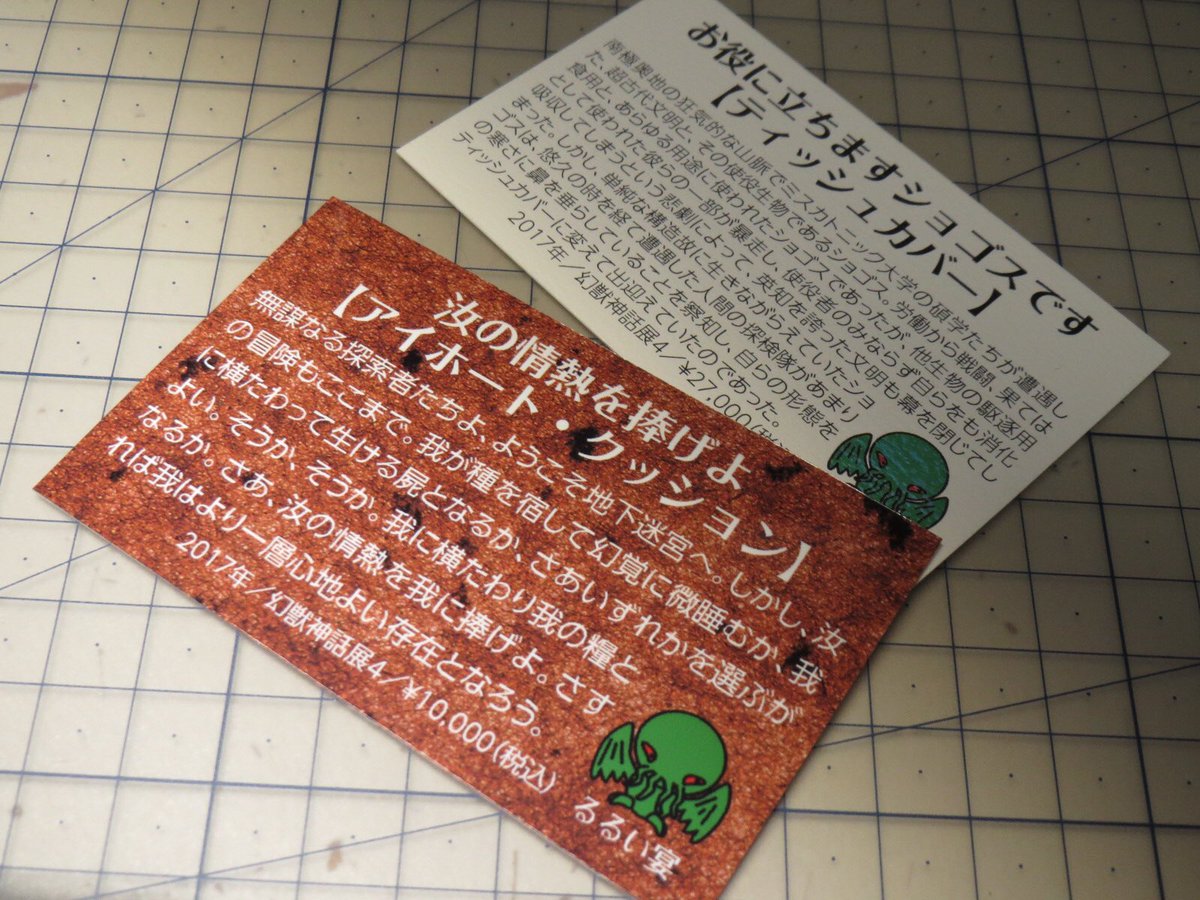 お役に立ちますショゴスです
【ティッシュカバー】
南極奥地の狂気的な山脈でミスカトニック大学の碩学たちが遭遇し
た、超古代文明と、その使役生物であるショゴス。労働から戦闘、果ては
食用と、あらゆる用途に使われたショゴスであったが、他生物の駆逐用
として使われた彼らの一部が暴走し、使役者のみならず自らをも消化
吸収してしまうという悲劇によって、英知を誇った文明も幕を閉じてし
まった。しかし、単純な構造故に生きながらえていたショ
ゴスは、悠久の時を経て遭遇した人間の探検隊があまり
の寒さに鼻を垂らしていることを察知し、自らの形態を
ティッシュカバーに変えて出迎えていたのであった。
2017年/幻獣神話展4/¥27,000(税
汝の情熱を捧げよ
【アイホート・クッション】
無謀なる探索者たちよ、ようこそ地下迷宮へ。しかし、汝
の冒険もここまで。我が種を宿して幻覚に微睡むか、我
に横たわって生ける屍となるか、さあいずれかを選ぶが
よい。そうか、そうか。我に横たわり我の糧と
なるか。さあ、汝の情熱を我に捧げよ。さす
れば我はより一層心地よい存在となろう。
2017年/幻獣神話展4/¥10,000(税込)
るるい宴